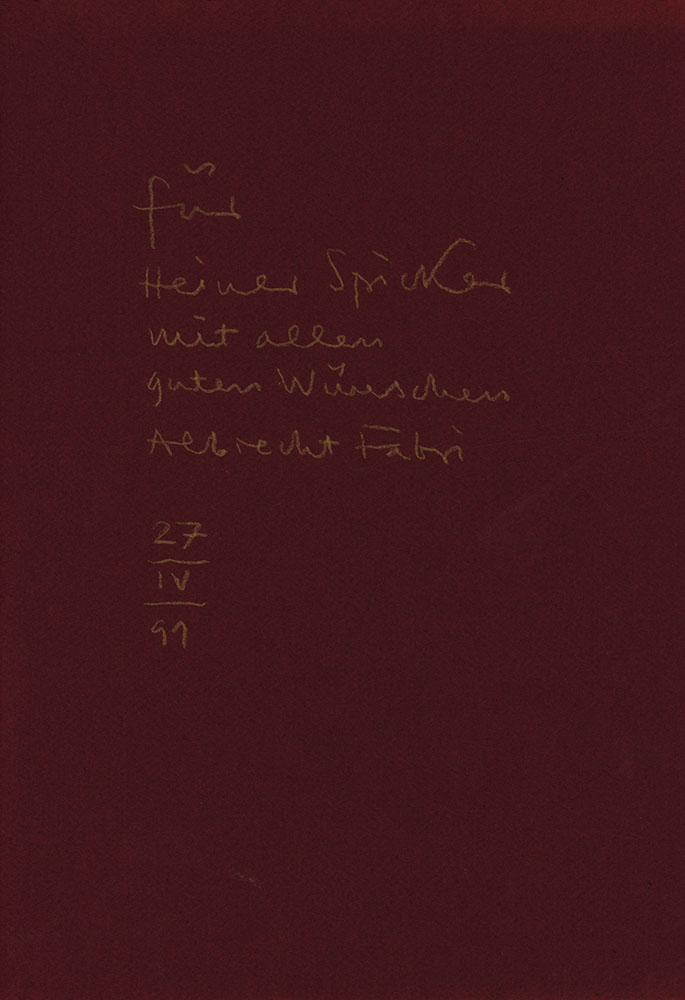 für
Heiner Spicker
mit allen
guten Wünschen
Albrecht Fabri
27
IV
91